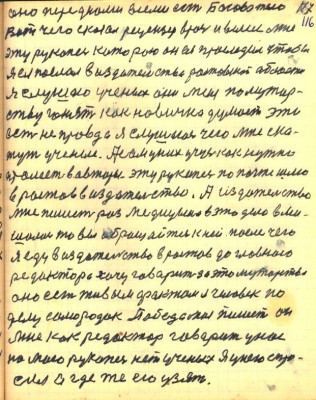 оно передкоми всеми ест Богоство 117
вот чего сколо рецензу врач и выслс мне 116
эту рукопес которою он сл прочодил чтобы
я ея послал в издателство ростовский обласной
я слушаю ученых они мещ по мытар-
ству гонят как новичка думают это
ест не правда я слушаюся чего мне ска-
жут ученые. А самух учус как нужно
стоят в авторы эту рукопес по почте шлю
в ростов в издателство. А издателство
мне пишет раз медицина в это дело вме-
шалас то вы обращайтес к ней. после чего
я еду в издателство в ростов до главного
редактора хочу говорит за это мытарство
оно ест живым фрактом я человек по
делу самородок Победоноса пишет он
мне как редактор говорит у нас
на твоего рукопес нет ученых я у него спро-
сил а где же его узят.